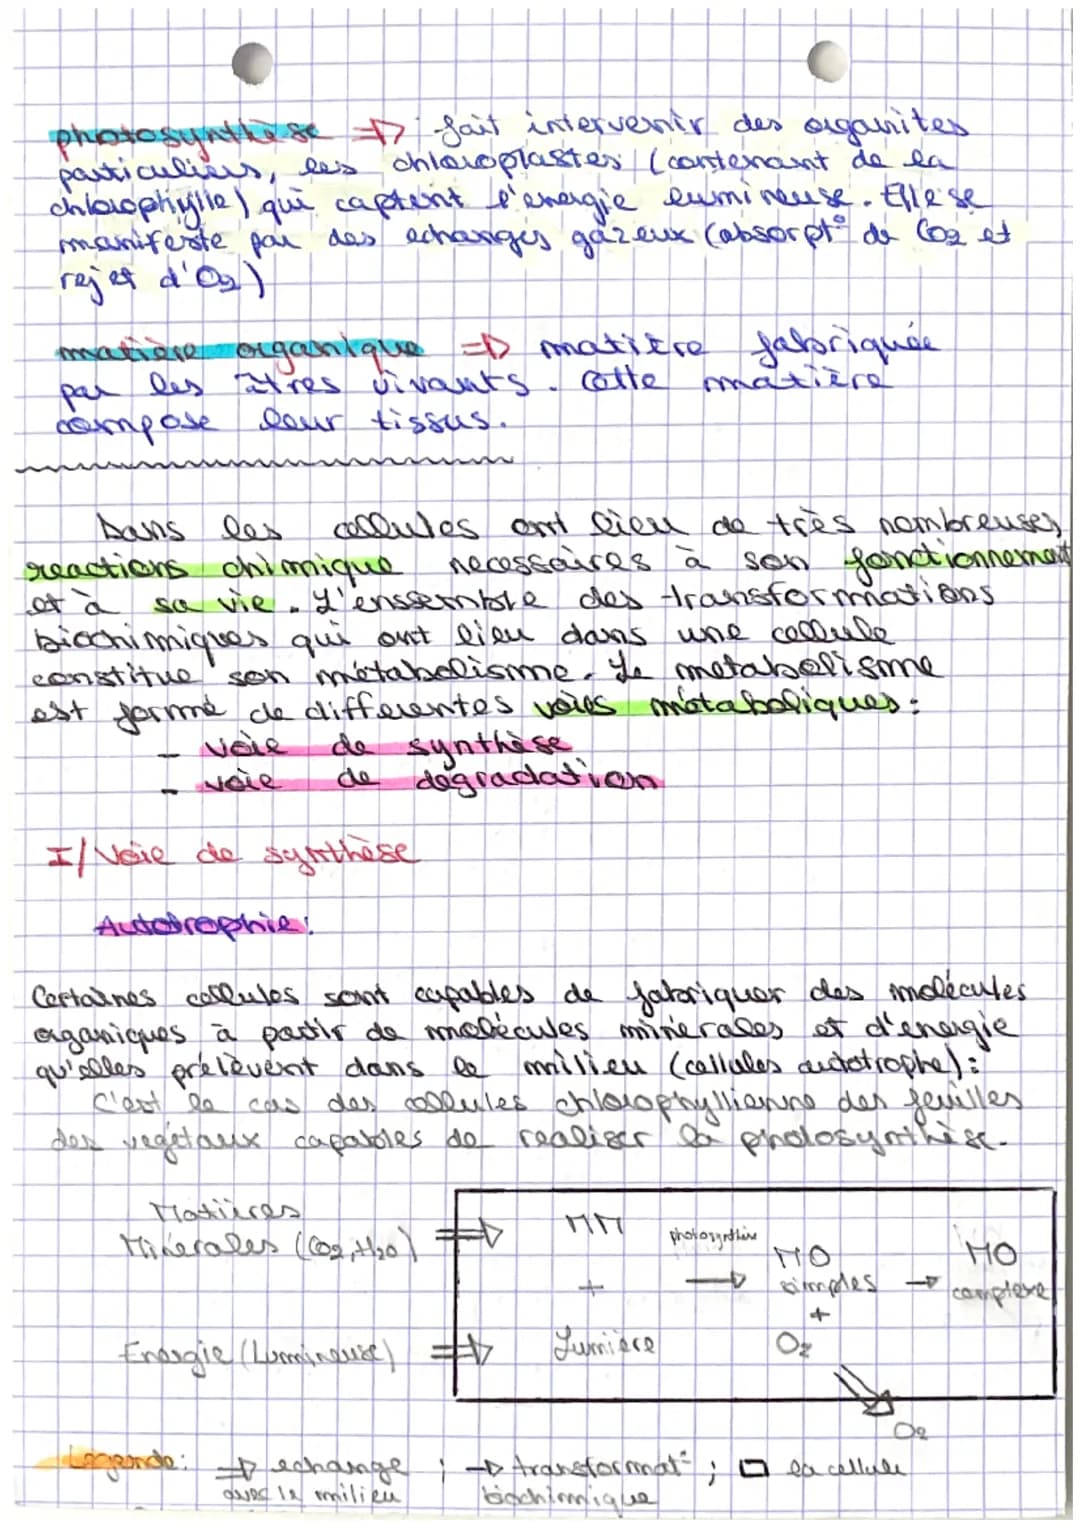 photosynthèse => fait intervenir des organites
particuliers, les chloroplastes (contenant de la
chlorophylle) qui captent l'énergie lumineuse. Elle se
manifeste par des echanges gazeux (absorpt° de CO2 et
rejet d'O2)
matière organique => matière fabriquée
par les êtres vivants. Cette matière
compose leur tissus.
Dans les cellules ont lieu de très nombreuses
reactions chimique necessaires à son fonctionnement
et à sa vie. L'enssemble des transformations
biochimiques qui ont lieu dans une cellule
constitue son métabolisme. Le metabolisme
est formé de differentes voies métaboliques:
- voie de synthèse
- voie de dégradation
I/ Voie de synthèse
Autotrophie:
Certaines cellules sont capables de fabriquer des molécules
organiques à partir de molécules minérales et d'energie
qu'elles prélèvent dans le milieu (cellules autotrophe):
C'est le cas des cellules chlorophyllienne des feuilles
des vegétaux capables de realiser la photosynthèse.
Matières
Minérales (CO2, H2O) => MM photosynthèse → MO simples → MO complexe
+ +
Energie (Lumineuse) => Lumière O2
O2
Légende: => echange avec le milieu ; → transformat° biochimique ; □ la cellule